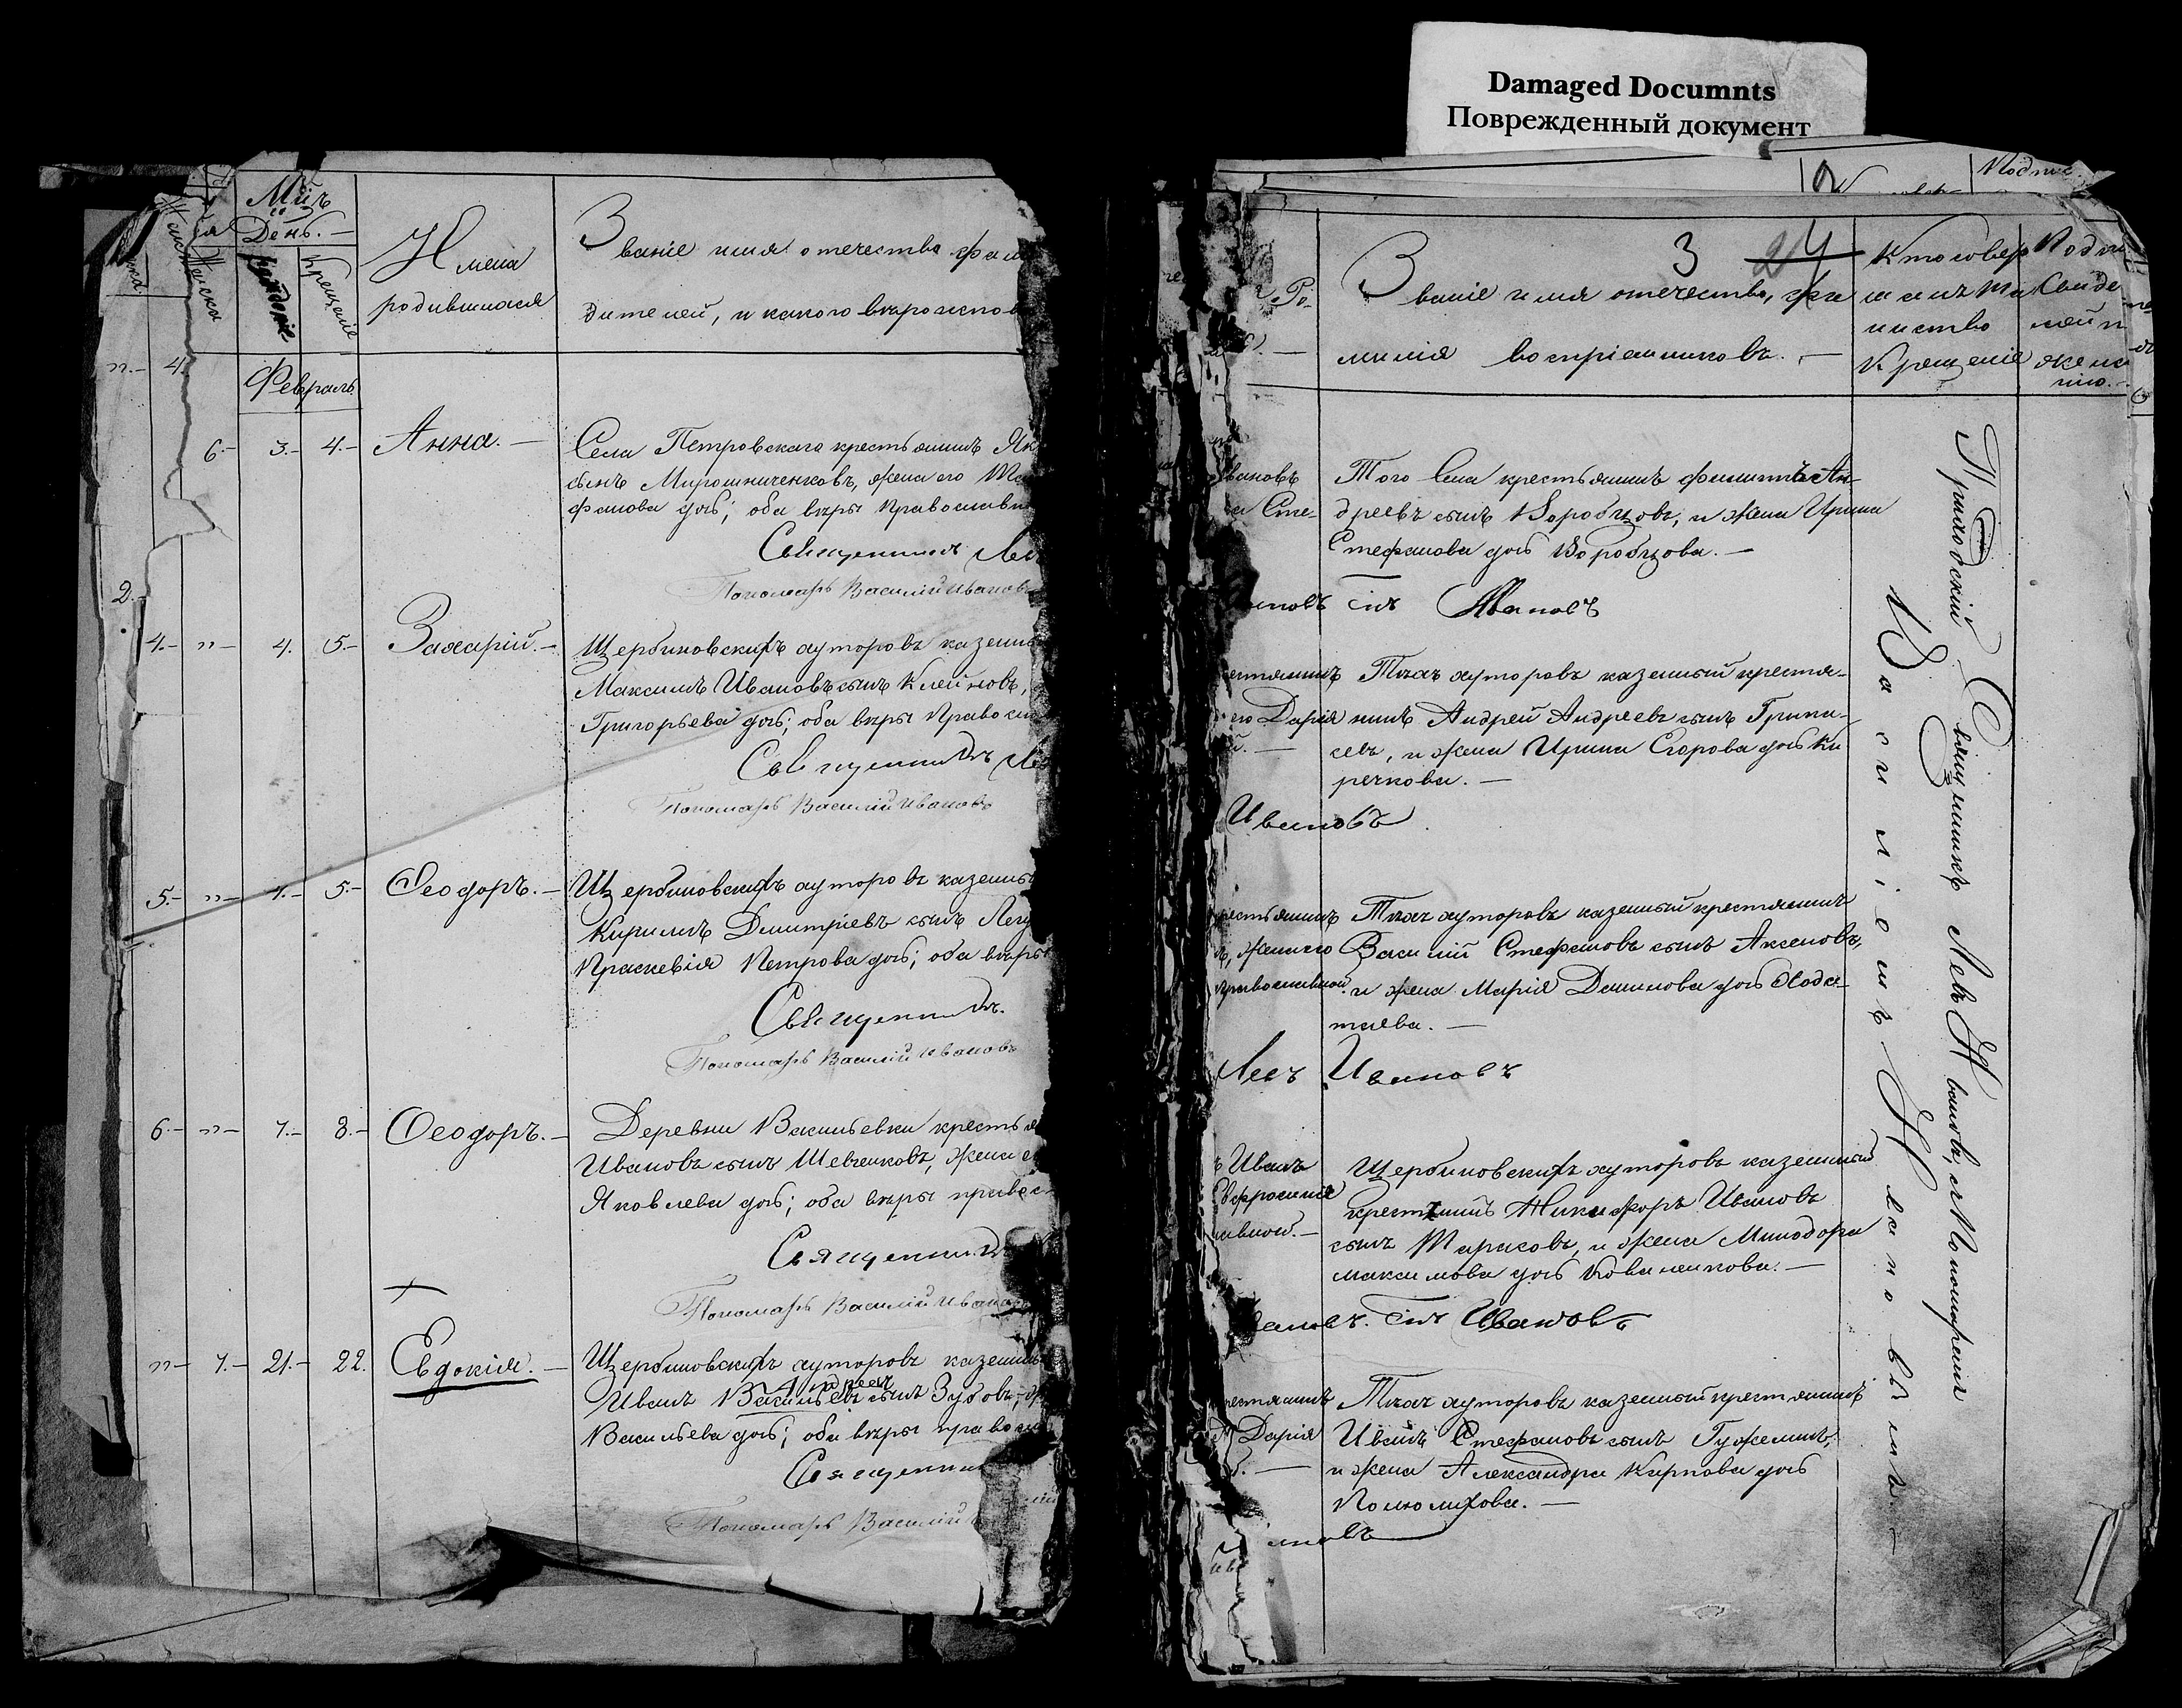 Damaged Documnts
Поврежденный документ
Мѣцъ
День.
Женска
рожденіе
крещеніе
Имена
родившихся
Званіе имя отечество фами
дителей, и какого вѣроиспов
Февраль
6.- 3.- 4.- Анна.-
Села Петровскаго крестьянинъ Як
сынъ Мирошниченковъ, жена его
фанова дочь; оба вѣры православн
Священникъ Лев
Пономарь Василий Ивановъ
2.-
4.- "- 4. 5.- Захарій.-
Щербиновскихъ хуторовъ казенн
Максимъ Ивановъ сынъ Клейновъ,
Григорьева дочь; оба вѣры Правосл
Священникъ Ле
Пономарь Василій Ивановъ
5.- "- 4.- 5.- Ѳеодоръ.-
Щербиновскихъ хуторовъ казенны
Кирилъ Димитріевъ сынъ
Праскевія Петрова дочь; оба вѣры
Священникъ.
Пономарь Василій Ивановъ
6.- "- 7.- 8.- Ѳеодоръ.-
Деревни Васильевки крестья
Ивановъ сынъ Шевченковъ, жена е
Яковлева дочь; оба вѣры правос
Священникъ
Пономарь Василій Ивановъ
"- 7.- 21.- 22. Евдокія.-
Щербиновскихъ хуторовъ казенн
Андреев
Иванъ Васильевъ сынъ Зубовъ,
Васильева дочь; оба вѣры правосл
Священник
Пономарь Василій
3 24
Ро-
Званіе имя отечество, фа
милія воспріемниковъ.-
Кто совер
шилъ та
инство
крещенія
Подпи
Свиде
лей п
жела
нію.-
вановъ
а Сте-
Того села крестьянинъ Филиппъ Ан-
дреевъ сынъ Воробцовъ, и жена Ирина
Стефанова дочь Воробцова.-
новъ Ивановъ
естянинъ
его Дарія
й.-
Тѣхъ хуторовъ казенный крестя-
нинъ Андрей Андреевъ сынъ
и жена Ирина Егорова дочь Ки
речкова.-
Ивановъ
рестьянинъ
ъ, жена его
православной.
Тѣхъ хуторовъ казенный крестянинъ
Василий Стефановъ сынъ Аксеновъ,
и жена Марія Данилова дочь
Левъ Ивановъ
ъ Иванъ
Евфросинія
авной.-
Щербиновскихъ хуторовъ казенный
крестянинъ Никифоръ Ивановъ
сынъ Тарасовъ, и жена Минодора
Максимова дочь Коваленкова.-
вановъ. Ивановъ
рестянинъ
Дарія
й.-
Тѣхъ хуторовъ казенный крестянинъ
Иванъ Стефановъ сынъ Гужелинъ,
и жена Александра Карпова дочь
новъ
Приходскій Священникъ Левъ Ивановъ, съ Пономаремъ
Василіемъ Ивановымъ.-